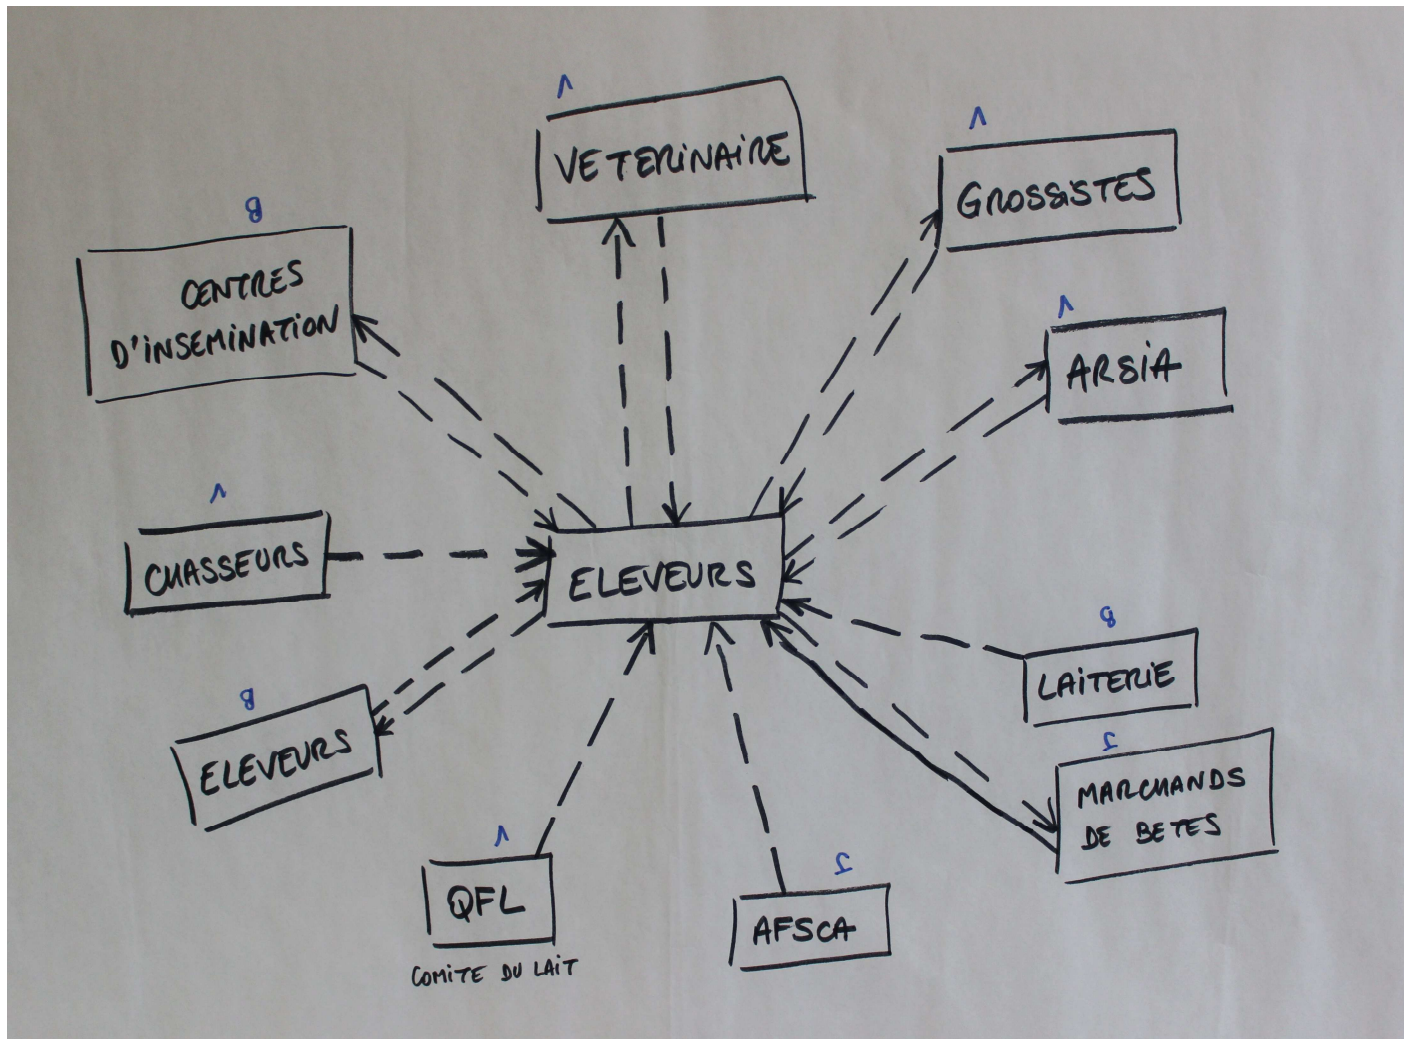 VETERINAIRE
GROSSISTES
CENTRES
D'INSEMINATION
ARSIA
CHASSEURS
ELEVEURS
LAITERIE
ELEVEURS
MARCHANDS
DE BETES
QFL
COMITE DU LAIT
AFSCA